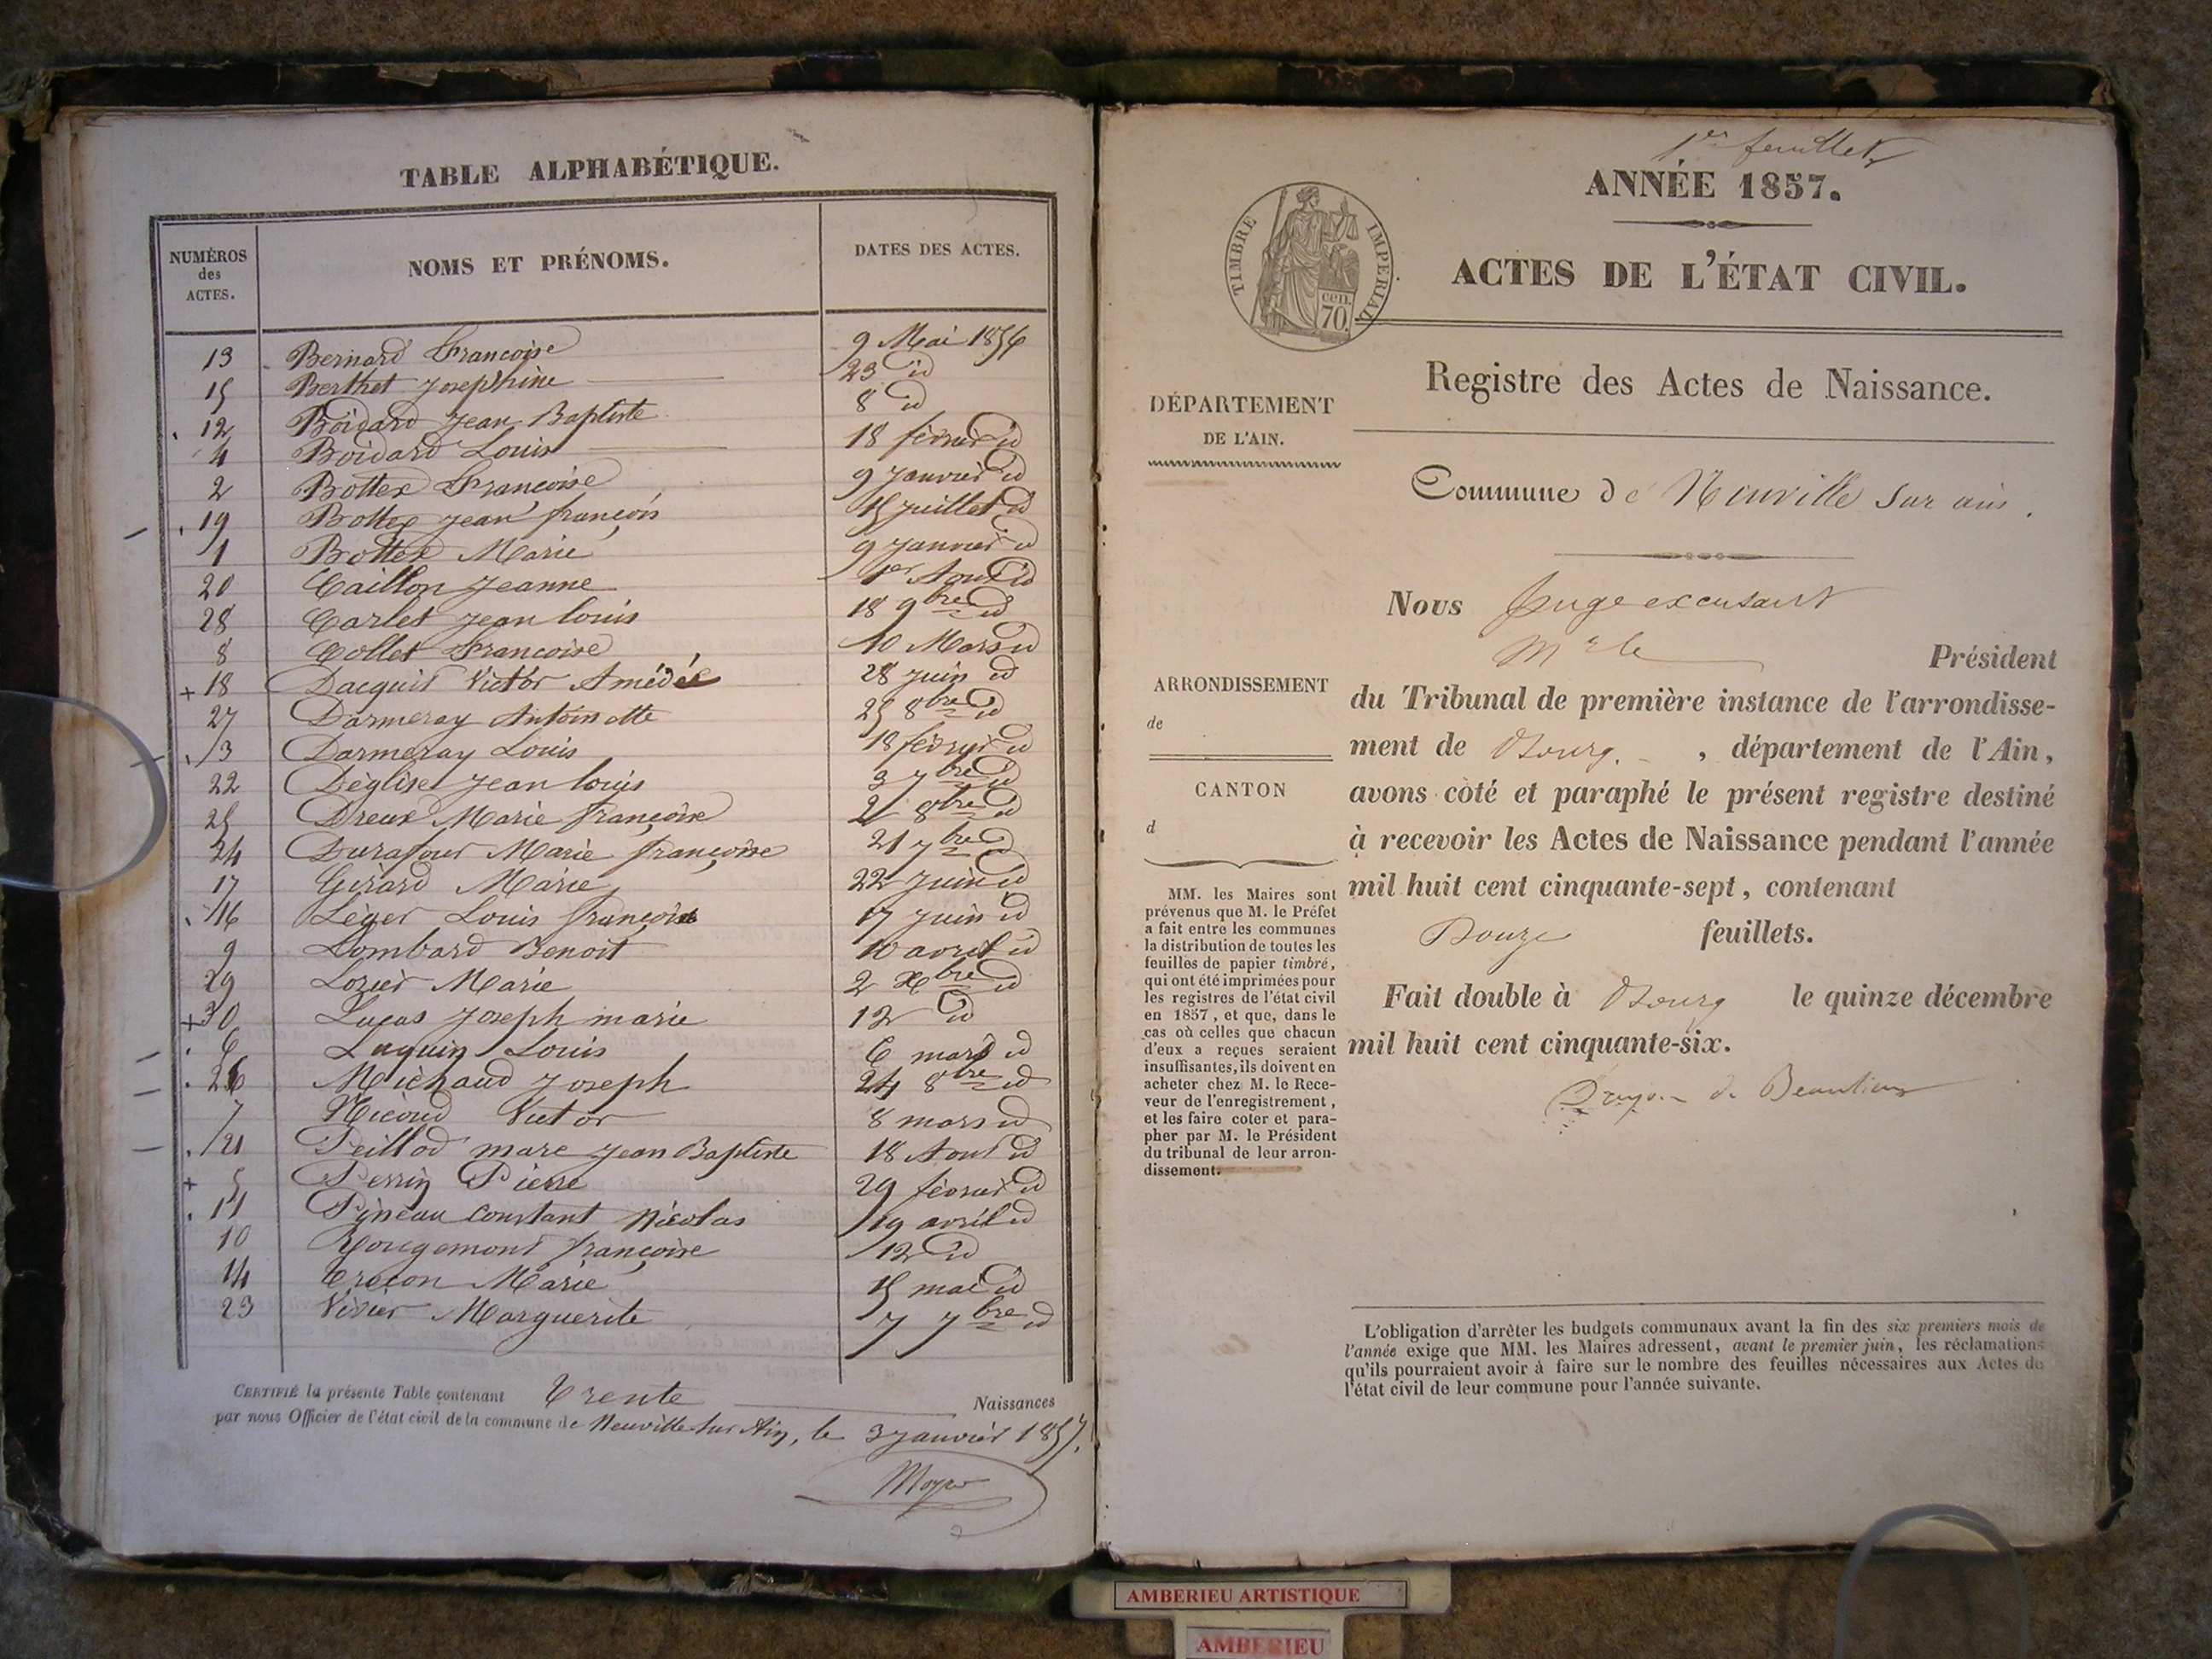 TABLE ALPHABÉTIQUE.
NUMÉROS des ACTES. NOMS ET PRÉNOMS. DATES DES ACTES.
13 Bernard Françoise 9 Mai 1856
15 Berthet Josephine 23 id
12 Boidard Jean Baptiste 8 id
4 Boidard Louis 18 février id
2 Bottex Françoise 9 Janvier id
19 Bottex Jean françois 15 Juillet id
1 Bottex Marie 9 Janvier id
20 Caillon Jeanne 1er Aout id
28 Carlet Jean louis 18 9bre id
8 Collet Francoise 10 Mars id
+ 18 Dacquit Victor Amédée 28 Juin id
27 Darmeray Antoinette 25 8bre id
3 Darmeray Louis 18 février id
22 Déglise Jean louis 3 7bre id
25 Dreux Marie françoise 2 8bre id
24 Durafour Marie françoise 21 7bre id
17 Girard Marie 22 Juin id
16 Léger Louis françois 17 Juin id
9 Lombard Benoit 10 avril id
29 Lozier Marie 2 Xbre id
+ 30 Lucas Joseph marie 12 id
6 Luquin Louis 6 mars id
26 Michaud Joseph 24 8bre id
7 Nicoud Victor 8 mars id
21 Peillod marc Jean Baptiste 18 Aout id
+ 5 Perrin Pierre 29 février id
11 Pineau Constant Nicolas 19 avril id
10 Rougemont françoise 12 id
14 Trocon Marie 15 mai id
23 Vivier Marguerite 7 7bre id
CERTIFIÉ la présente Table contenant Trente Naissances
par nous Officier de l'état civil de la commune de Neuville sur Ain, le 3 Janvier 1857.
1er feuillet
ANNÉE 1857.
TIMBRE IMPERIAL
cen.
70
ACTES DE L'ÉTAT CIVIL.
Registre des Actes de Naissance.
DÉPARTEMENT
DE L'AIN.
Commune de Neuville sur ain.
Nous Juge excusant
Mr le Président
ARRONDISSEMENT
de
CANTON
d
du Tribunal de première instance de l'arrondisse-
ment de Bourg. , département de l'Ain,
avons coté et paraphé le présent registre destiné
à recevoir les Actes de Naissance pendant l'année
mil huit cent cinquante-sept, contenant
Douze feuillets.
Fait double à Bourg le quinze décembre
mil huit cent cinquante-six.
de Beaulieu
MM. les Maires sont
prévenus que M. le Préfet
a fait entre les communes
la distribution de toutes les
feuilles de papier timbré,
qui ont été imprimées pour
les registres de l'état civil
en 1857, et que, dans le
cas où celles que chacun
d'eux a reçues seraient
insuffisantes, ils doivent en
acheter chez M. le Rece-
veur de l'enregistrement,
et les faire coter et para-
pher par M. le Président
du tribunal de leur arron-
dissement.
L'obligation d'arrêter les budgets communaux avant la fin des six premiers mois de
l'année exige que MM. les Maires adressent, avant le premier juin, les réclamations
qu'ils pourraient avoir à faire sur le nombre des feuilles nécessaires aux Actes de
l'état civil de leur commune pour l'année suivante.
AMBERIEU ARTISTIQUE
AMBERIEU